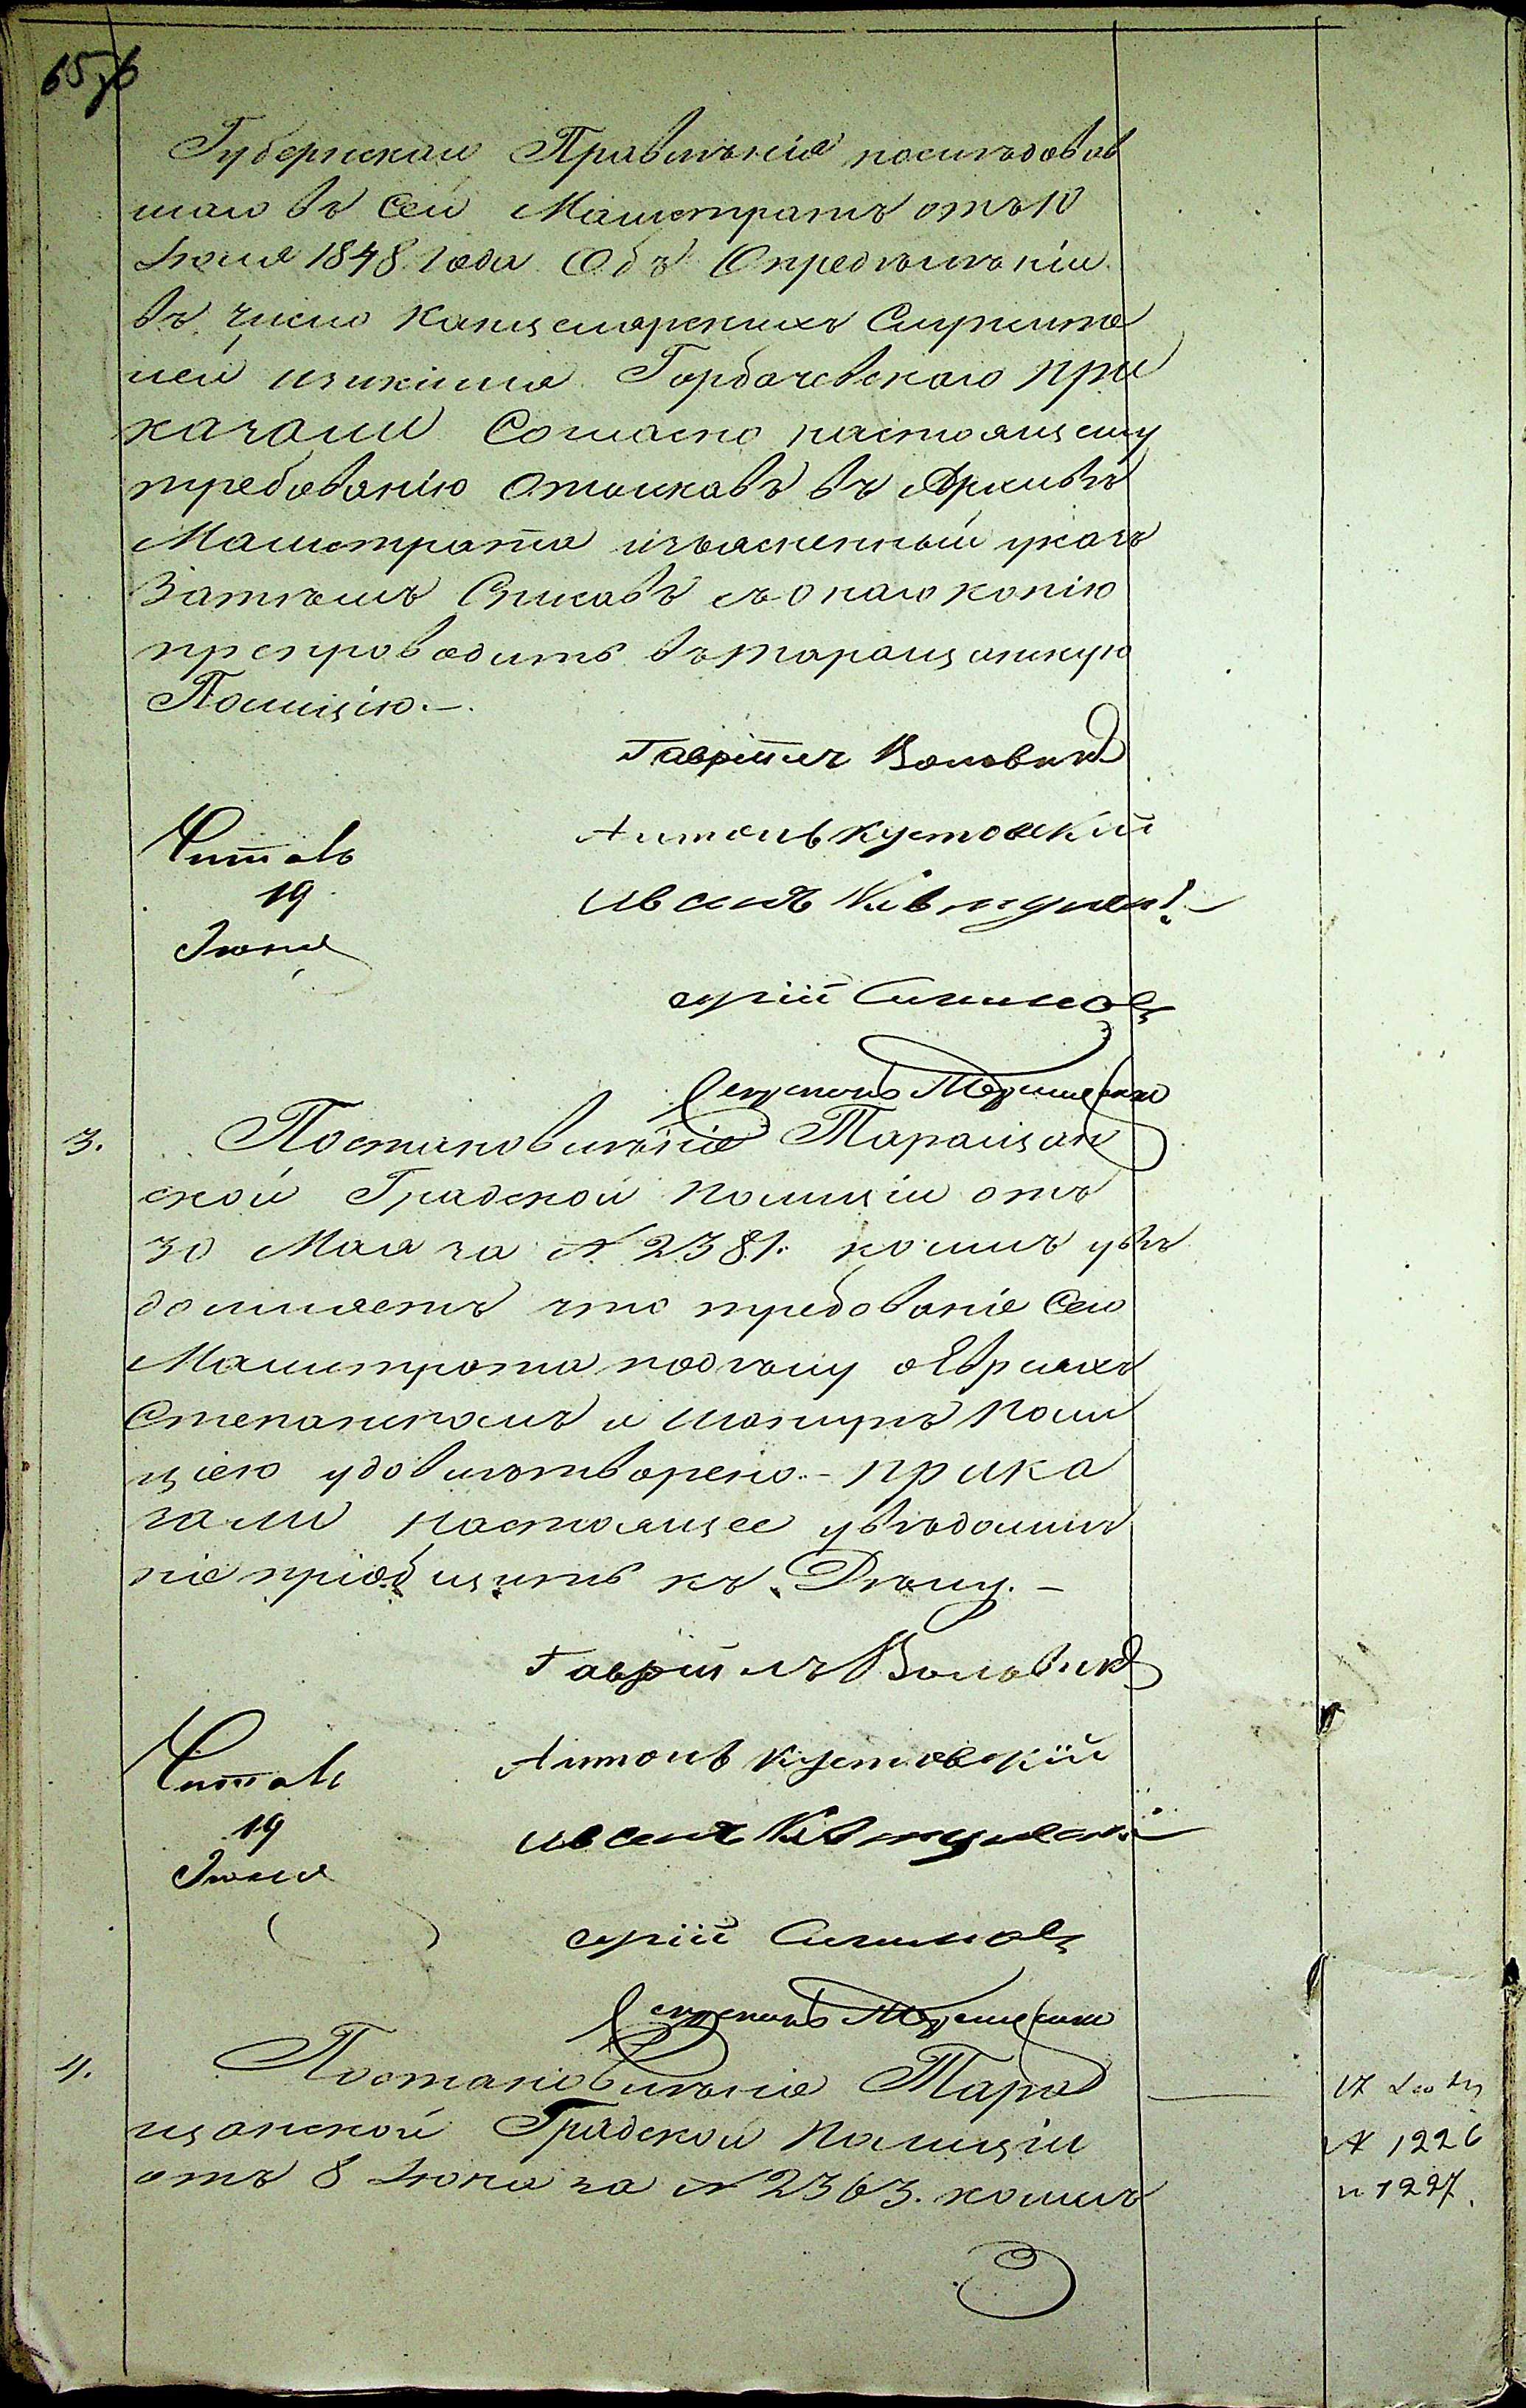 65 об
Губернскаго Правленія последовав
шаго въ Сей Магистратъ отъ 10
Іюля 1848 года Объ Определеніи
въ число Канцелярскихъ Служите
лей Горбачевскаго При
казали Согласно настоящему
требованію Отыскавъ въ Архивѣ
Магистрата изъясненный указъ
Затѣмъ Списавъ съ онаго копію
препроводить въ Таращанскую
Полицію.-
Гавріилъ Воловикъ
Антонъ Кустовскій
Читалъ
19
Іюня
3. Постановленіе Таращан
ской Градской Полиціи отъ
30 Мая за № 2381. коимъ увѣ
домляетъ что требованіе Сего
Магистрата по дѣлу о Евреяхъ
Степанскомъ и Поли
ціею удовлетворено.- Прика
зали Настоящее увѣдомле
ніе пріобщить къ Дѣлу.-
Гавріилъ Воловикъ
Антонъ Кустовскій
Читалъ
19
Іюня
4. Постановленіе Тара
щанской Градской Полиціи
отъ 8 Іюня за № 2363. коимъ
17 Іюня
№ 1226
и 1227.